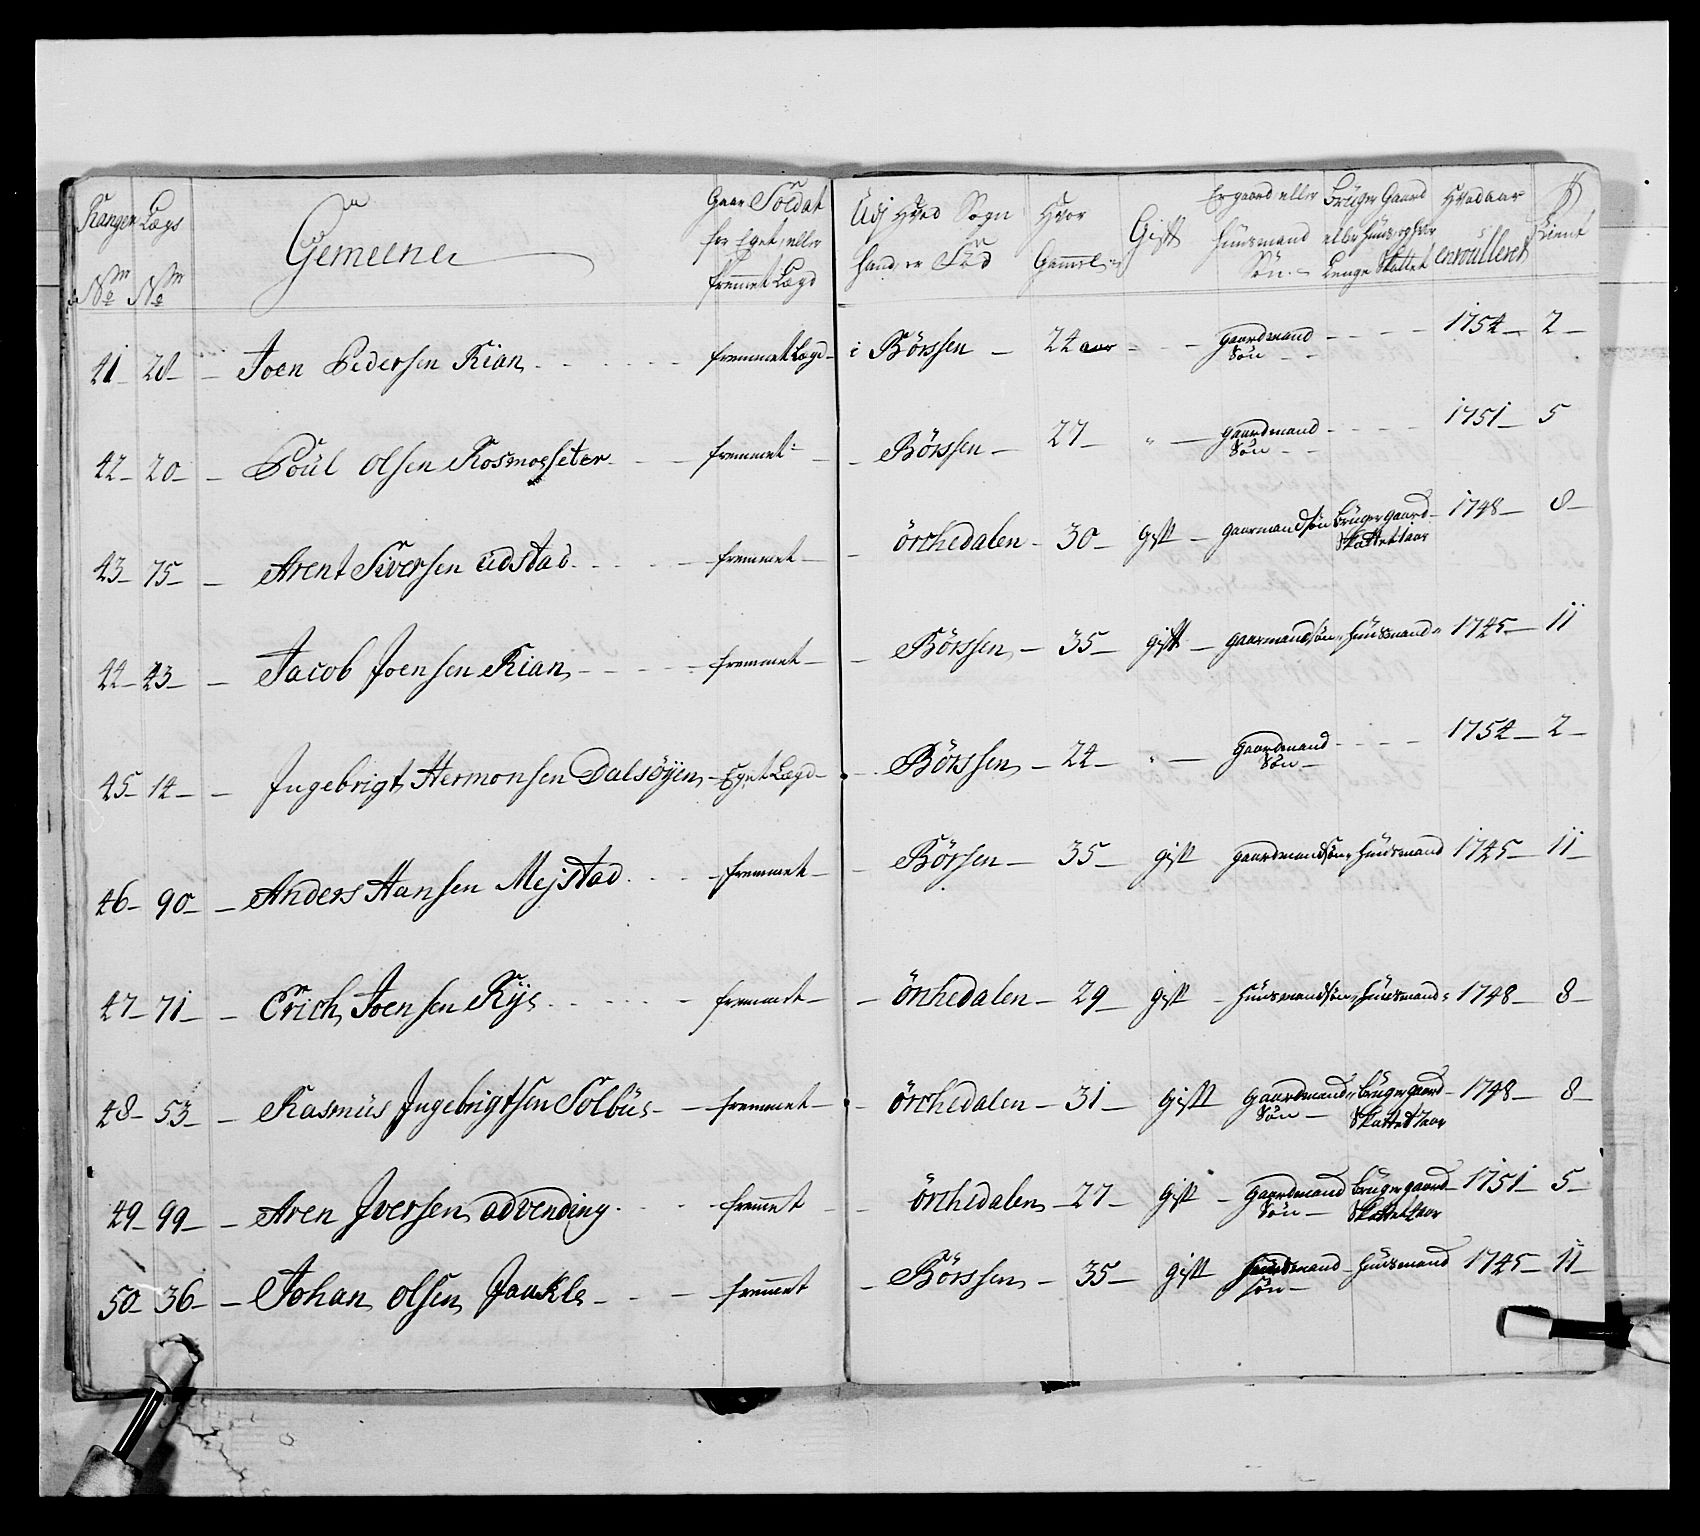 Rangen Lægs
No No
Gemeene
Gaar Soldat
for Eget, eller
fremmet Lægd
Udj Hvad Sogn
hand er Fød
Hvor
Gammel
Gift
Er gaard eller
Huusmand
Søn
Bruger Gaard
eller Huus, og hvor
Lenge Skattet
Hvad aar
enroulleret
Tient
41 28 Joen Pedersen Rian fremmet Lægd i Börssen 24 aar gaardmand Søn 1754 2
42 20 Poül Olsen Rosmosseter fremmet Börssen 27 " gaardmand Søn 1751 5
43 75 Arent Siversen Udstad fremmet örchedalen 30 gift gaarmandsøn Brüger gaard Skattet 1 aar 1748 8
44 43 Jacob Joensen Rian fremmet Börssen 35 gift gaarmandsøn Huusmand 1745 11
45 14 Ingebrigt Hermonsen Dalsöyen Eget Lægd Börssen 24 " gaardmand Søn 1754 2
46 90 Anders Hansen Mejstad fremmet Börssen 35 gift gaardmandsøn Huusmand 1745 11
47 71 Erich Joensen Rye fremmet örchedalen 29 gift Huusmandsøn Huusmand 1748 8
48 53 Rasmüs Ingebrigtsen Solbüe fremmet örchedalen 31 Gift gaardmand Søn Brüger gaard Skattet 7 aar 1748 8
49 99 Aren Iversen Advending fremmet örchedalen 27 Gift gaardmand Søn Brüger gaard Skattet 1751 5
50 36 Johan Olsen Jaakle fremmet Börssen 35 gift Huusmand Søn Huusmand 1745 11